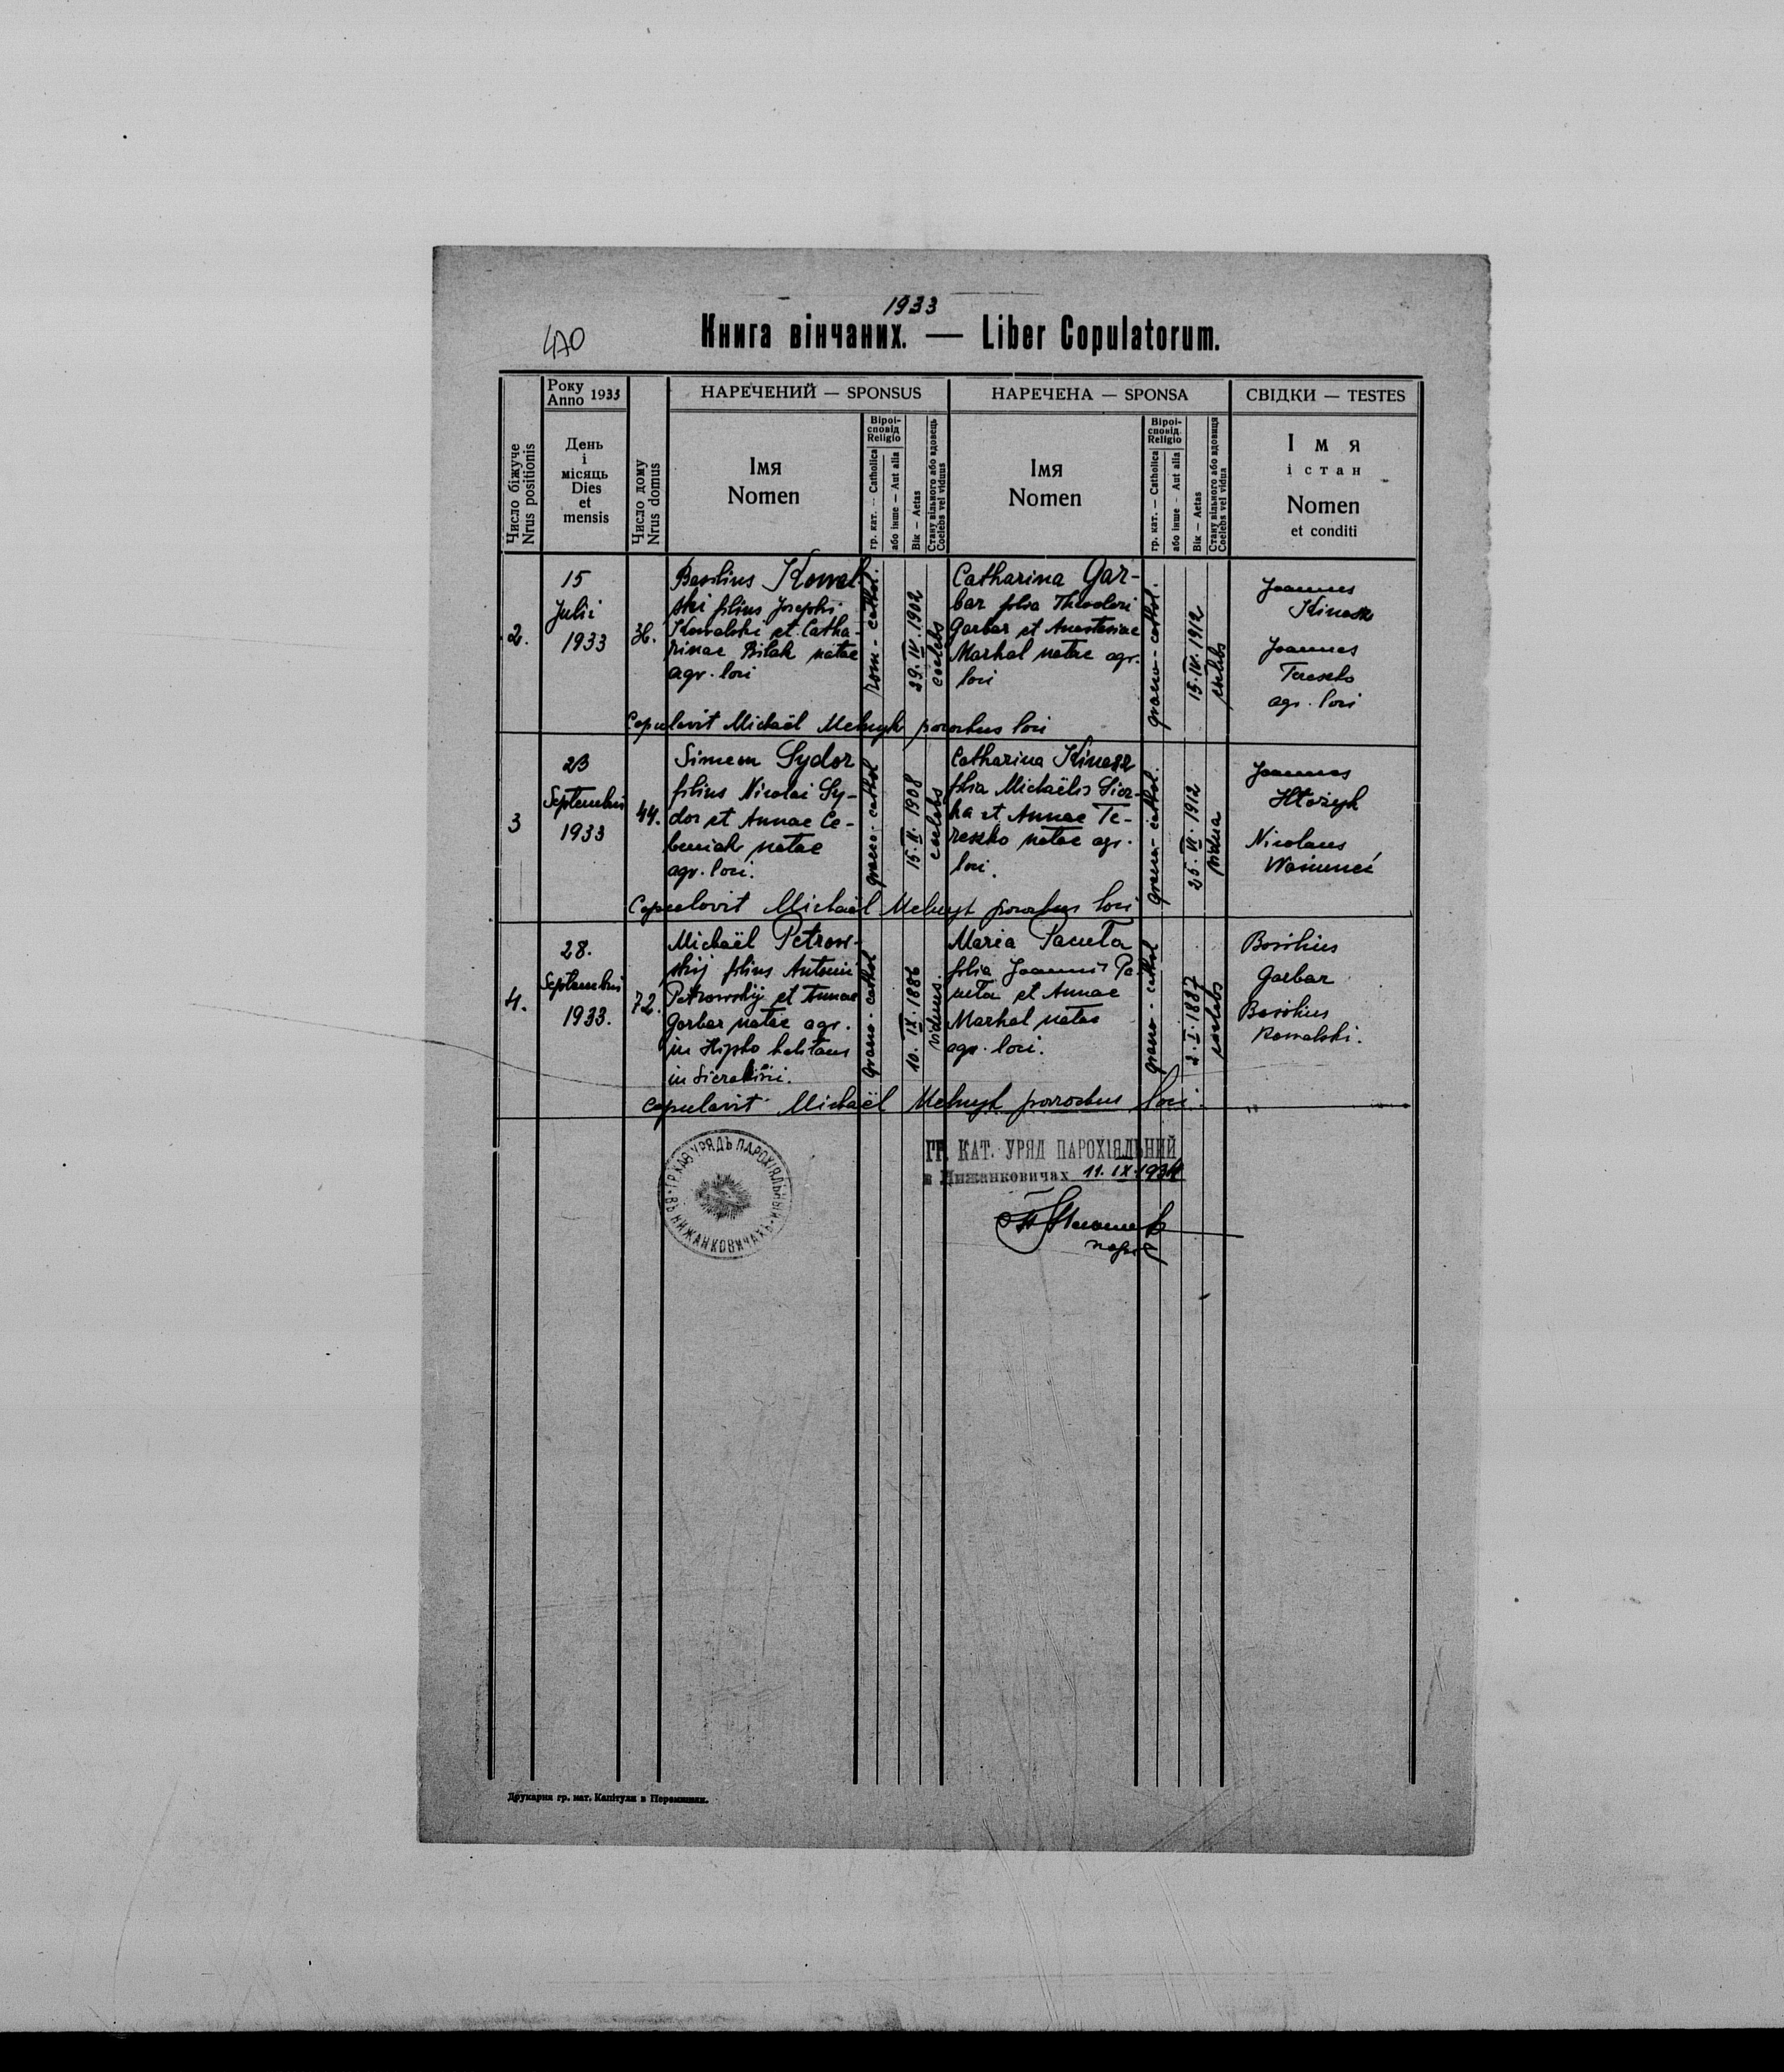 1933
470
Книга вінчаних. — Liber Copulatorum.
Число біжуче
Nrus positionis
Року
Anno 1933
День
і
місяць
Dies
et
mensis
Число дому
Nrus domus
НАРЕЧЕНИЙ — SPONSUS
Імя
Nomen
Віроі-
сповід
Religio
гр. кат. — Catholica
або інше — Aut alia
Вік — Aetas
Стану вільного або вдовець
Coelebs vel viduus
НАРЕЧЕНА — SPONSA
Імя
Nomen
Віроі-
сповід.
Religio
гр. кат. — Catholica
або інше - Aut alia
Вік — Aetas
Стану вільного або вдовиця
Coelebs vel vidua
СВІДКИ — TESTES
Імя
і стан
Nomen
et conditi
2.
15
Julii
1933
36.
Basilius Kowal-
ski filius Josephi
Kowalski et Catha-
rinae Bilak natae
agr. loci
rom - cathol.
29. IV. 1902
coelebs
Catharina Gar-
bar filia Theodori
Garbar et Anastasiae
Markal natae agr.
loci
graeco - cathol.
15. IV. 1912
coelebs
Joannes
Kinasz
Joannes
Tereszko
agr. loci
Copulavit Michaël Melnyk parochus loci
3
23
Septembris
1933
44.
Simeon Sydor
filius Nicolai Sy-
dor et Annae Ce-
natae
agr. loci.
graeco - cathol
15. II. 1908
coelebs
Catharina Kinasz
filia Michaëlis
et Annae Te-
reszko natae agr.
loci.
graeco - cathol.
25. VI. 1912
vidua
Joannes
Nicolaus
Copulavit Michaël Melnyk parochus loci
4.
28.
Septembris
1933.
72.
Michaël Petrow-
skij filius Antonii
Petrowskij et Annae
Garbar natae agr.
in habitans
in
graeco - cathol
10. IX. 1886
viduus.
Maria Paneta
filia Joannis Pa-
neta et Annae
Markal natae
agr. loci.
graeco - cathol
2. I. 1887
coelebs
Basilius
Garbar
Basilius
Kowalski.
Copulavit Michaël Melnyk parochus loci.
ГР. КАТ. УРЯД ПАРОХІЯЛЬНИЙ
в Нижанковичах 11. IX. 1934
ГР. КАТ. УРЯДЪ ПАРОХІЯЛЬНЫЙ ВЪ НИЖАНКОВИЧАХЪ
Друкарня гр. кат. Капітули в Перемишли.